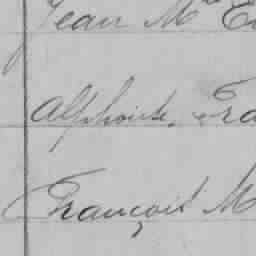 Jean M
Alphonse Fra
François M